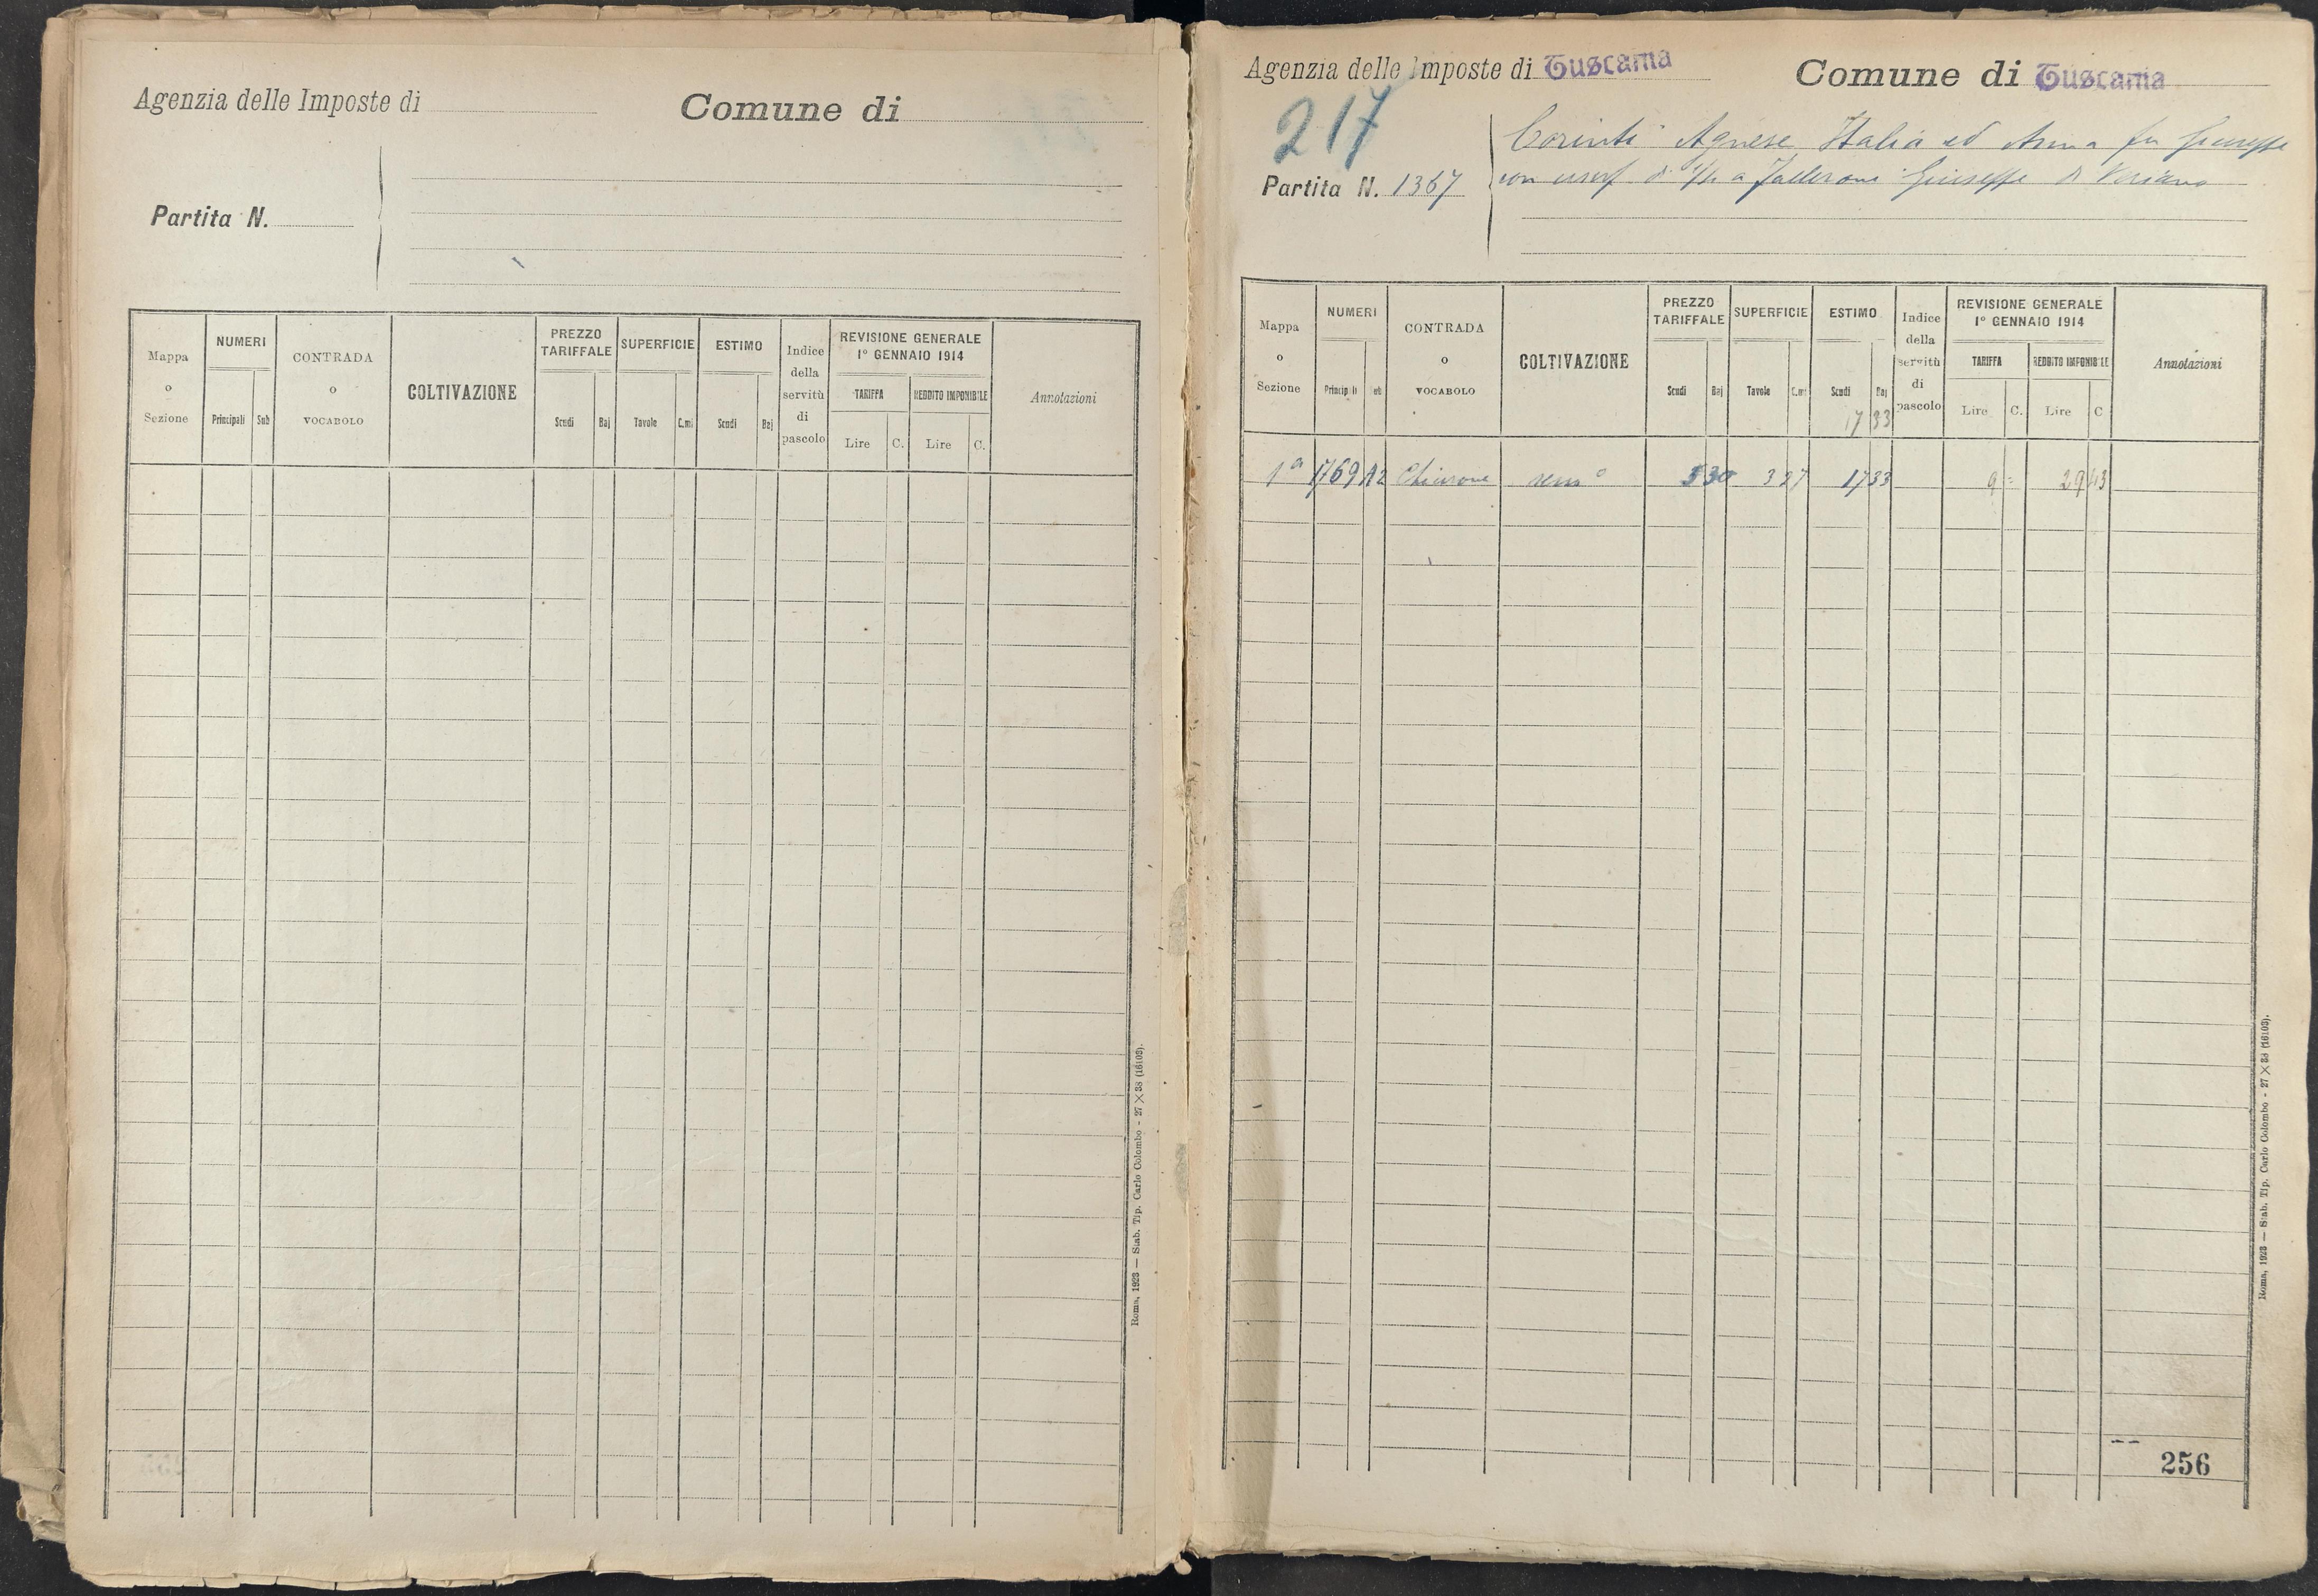 Agenzia delle Imposte di
Comune di
Partita N.
Mappa o Sezione
NUMERI
Principali Sub
CONTRADA o VOCABOLO
COLTIVAZIONE
PREZZO TARIFFALE
Scudi Baj
SUPERFICIE
Tavole C.mi
ESTIMO
Scudi Baj
Indice della servitù di pascolo
REVISIONE GENERALE
1º GENNAIO 1914
TARIFFA
Lire C.
REDDITO IMPONIBILE
Lire C.
Annotazioni
Roma, 1923 — Stab. Tip. Carlo Colombo - 27 × 38 (16103).
Agenzia delle Imposte di Tuscania
Comune di Tuscania
217
Partita N. 1367
Corinti Agnese Italia ed Anna fu Giuseppe
con usuf di a Giuseppe di
Mappa o Sezione
NUMERI
Principali Sub
CONTRADA o VOCABOLO
COLTIVAZIONE
PREZZO TARIFFALE
Scudi Baj
SUPERFICIE
Tavole C.mi
ESTIMO
Scudi Baj
17 33
Indice della servitù di pascolo
REVISIONE GENERALE
1º GENNAIO 1914
TARIFFA
Lire C.
REDDITO IMPONIBILE
Lire C
Annotazioni
1ª 1769 Chiarone semº 5 30 3 27 17 33 9 = 29 43
Roma, 1923 — Stab. Tip. Carlo Colombo - 27 × 38 (16103).
256